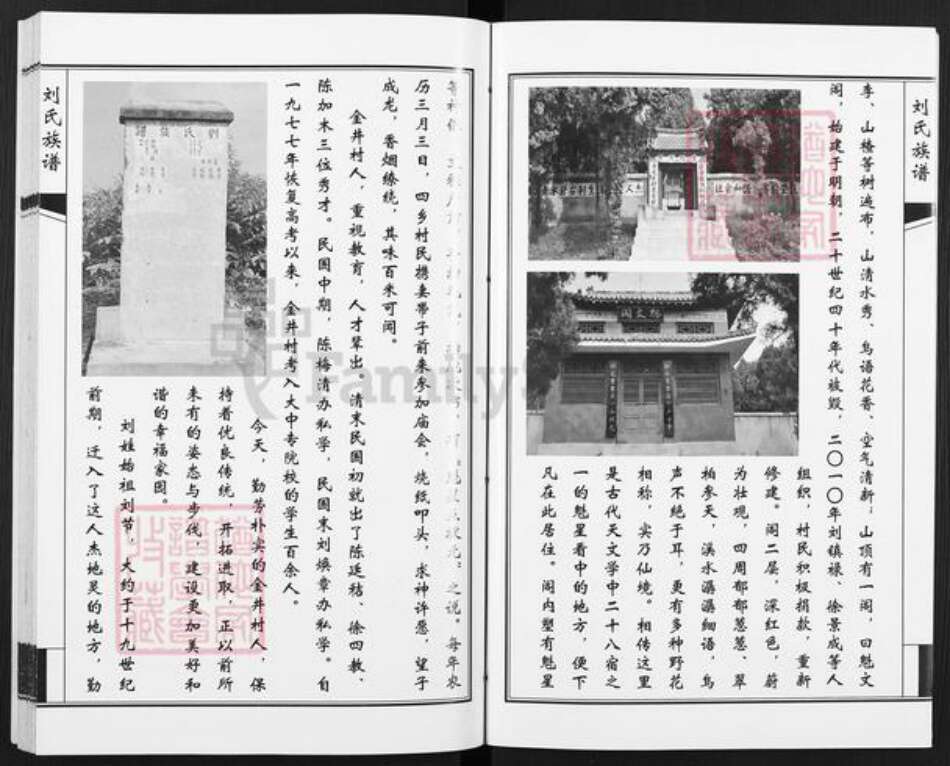 刘氏族谱
李、山楂等树遍布，山清水秀、鸟语花香、空气清新；山顶有一阁，曰魁文
阁，始建于明朝，二十世纪四十年代被毁，二〇一〇年刘镇禄、徐景成等人
组织，村民积极捐款，重新
修建。阁二层，深红色，蔚
为壮观，四周郁郁葱葱、翠
柏参天，溪水潺潺细语，鸟
声不绝于耳，更有多种野花
相称，实乃仙境。相传这里
是古代天文学中二十八宿之
一的魁星看中的地方，便下
凡在此居住。阁内塑有魁星
之说。每年农
历三月三日，四乡村民携妻带子前来参加庙会，烧纸叩头，求神许愿，望子
成龙，香烟缭绕，其味百米可闻。
金井村人，重视教育，人才辈出。清末民国初就出了陈延祜、徐四教、
陈加木三位秀才。民国中期，陈梅清办私学，民国末刘焕章办私学。自
一九七七年恢复高考以来，金井村考入大中专院校的学生百余人。
今天，勤劳朴实的金井村人，保
持着优良传统，开拓进取，正以前所
未有的姿态与步伐，建设更加美好和
谐的幸福家园。
刘姓始祖刘节，大约于十九世纪
前期，迁入了这人杰地灵的地方，勤
刘氏族谱
劉氏族譜
魁文阁
Family